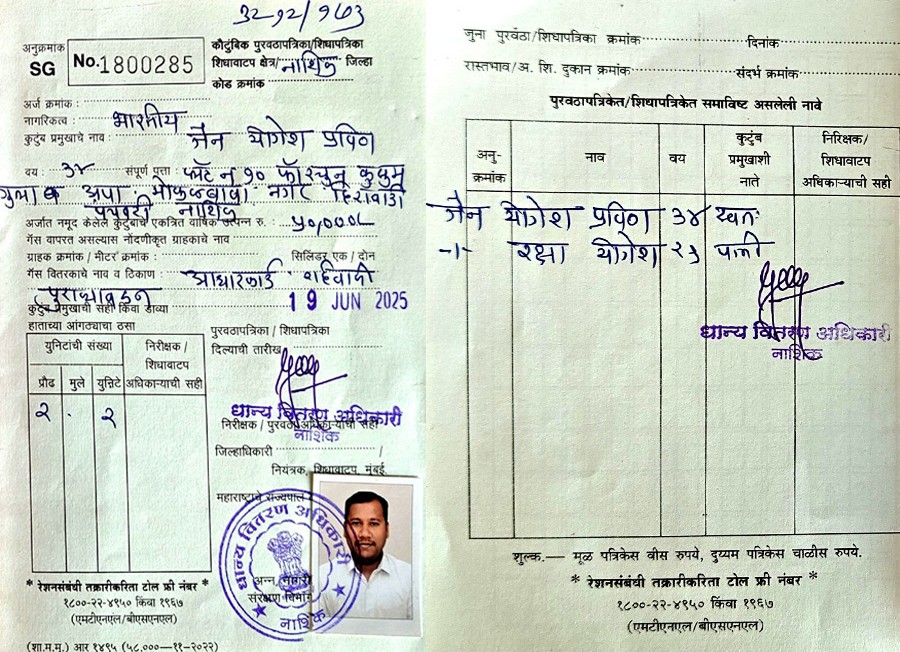 ३२१२/१७३
अनुक्रमांक
SG
No.1800285
कौटुंबिक पुरवठापत्रिका/शिधापत्रिका
शिधावाटप क्षेत्र/नाशिक जिल्हा
कोड क्रमांक :
अर्ज क्रमांक :
नागरिकत्व : भारतीय
कुटुंब प्रमुखाचे नाव : जैन योगेश प्रविण
वय : ३४ संपूर्ण पत्ता : फ्लॅट नं १० फॉरच्युन कुसुम
अपा. गोकुळबाबा नगर हिरावाडी
पंचवटी नाशिक
अर्जात नमूद केलेले कुटुंबाचे एकत्रित वार्षिक उत्पन्न रु. : ५०,०००/-
गॅस वापरत असल्यास नोंदणीकृत ग्राहकाचे नाव
ग्राहक क्रमांक / मीटर क्रमांक : सिलिंडर एक / दोन
गॅस वितरकाचे नाव व ठिकाण : आधारकार्ड
19 JUN 2025
कुटुंब प्रमुखाची सही किंवा डाव्या
हाताच्या आंगठ्याचा ठसा
युनिटांची संख्या
निरीक्षक / शिधावाटप अधिकाऱ्याची सही
प्रौढ मुले युनिटे
२ - २
पुरवठापत्रिका / शिधापत्रिका
दिल्याची तारीख
धान्य वितरण अधिकारी
नाशिक
निरीक्षक / पुरवठा अधिकाऱ्याची सही
जिल्हाधिकारी /
नियंत्रक, शिधावाटप, मुंबई.
महाराष्ट्राचे राज्यपाल
धान्य वितरण अधिकारी
अन्न, नागरी
संरक्षण विभाग
नाशिक
* रेशनसंबंधी तक्रारीकरिता टोल फ्री नंबर *
१८००-२२-४९५० किंवा १९६७
(एमटीएनएल/बीएसएनएल)
(शा.म.मु.) आर १४९५ (५८,०००—११-२०२२)
जुना पुरवठा/शिधापत्रिका क्रमांक दिनांक
रास्तभाव/अ. शि. दुकान क्रमांक संदर्भ क्रमांक
पुरवठापत्रिकेत/शिधापत्रिकेत समाविष्ट असलेली नावे
अनु-क्रमांक नाव वय कुटुंब प्रमुखाशी नाते निरिक्षक/ शिधावाटप अधिकाऱ्याची सही
जैन योगेश प्रविण ३४ स्वतः
-।- रक्षा योगेश २९ पत्नी
धान्य वितरण अधिकारी
नाशिक
शुल्क.— मूळ पत्रिकेस वीस रुपये, दुय्यम पत्रिकेस चाळीस रुपये.
* रेशनसंबंधी तक्रारीकरिता टोल फ्री नंबर *
१८००-२२-४९५० किंवा १९६७
(एमटीएनएल/बीएसएनएल)